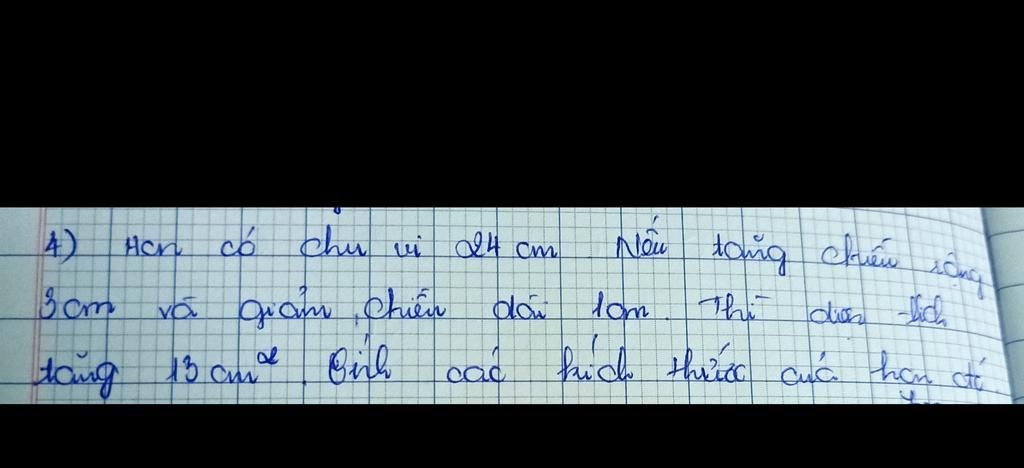 4) Hcn có chu vi 24 cm Nếu tăng chiều rộng
3cm và giảm chiều dài 1cm. Thì diện tích
tăng 13 cm². Tính các kích thước của hcn đó